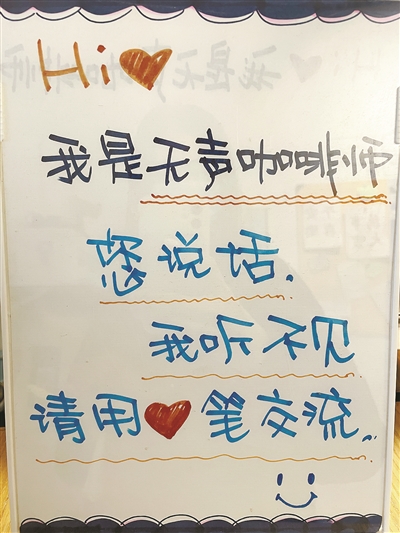 Hi❤
我是无声
您说话.
我听不见
请用❤笔交流..